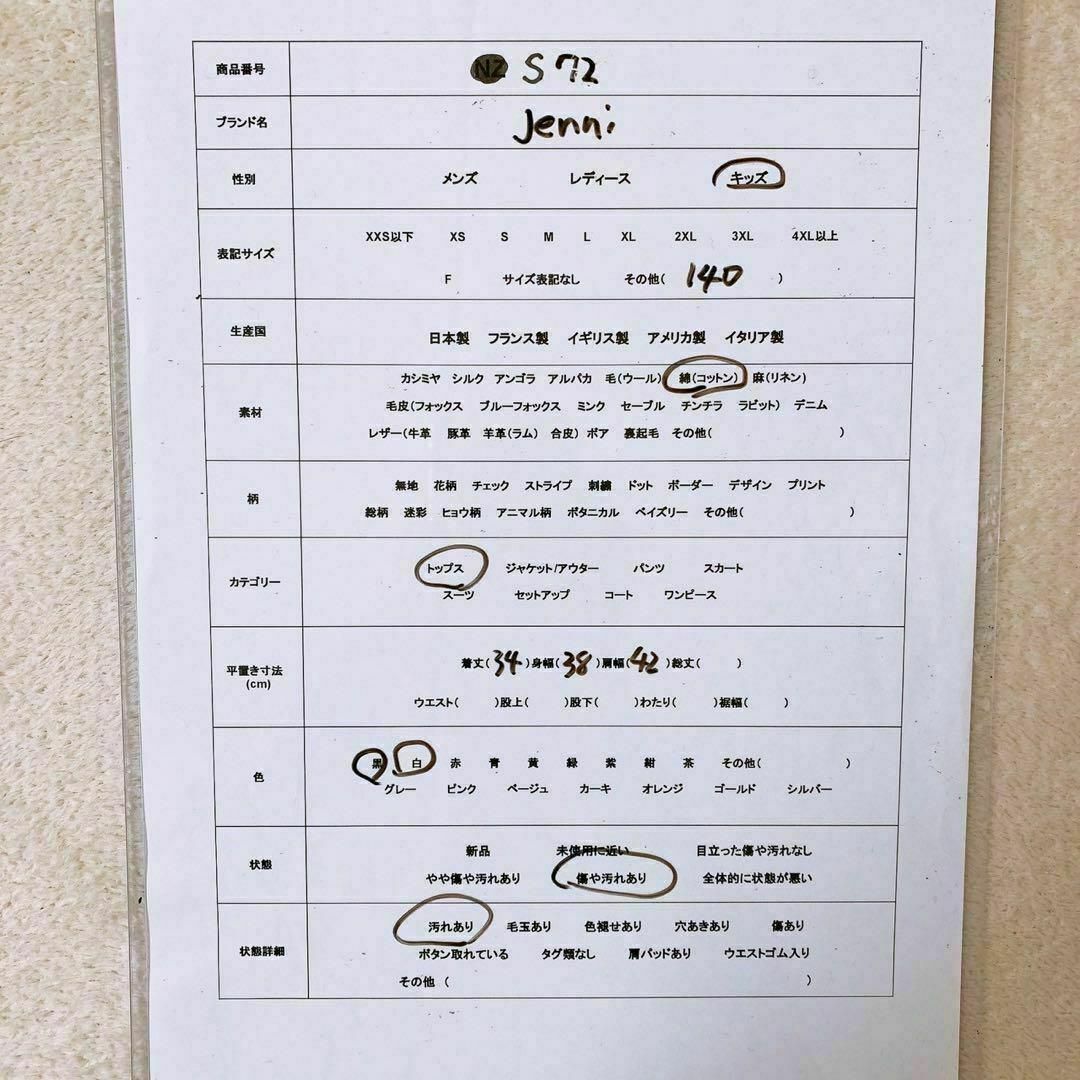 商品番号 NZ S 72
ブランド名 Jenni
性別 メンズ レディース キッズ
XXS以下 XS S M L XL 2XL 3XL 4XL以上
表記サイズ
F サイズ表記なし その他( 140 )
生産国 日本製 フランス製 イギリス製 アメリカ製 イタリア製
カシミヤ シルク アンゴラ アルパカ 毛(ウール) 綿(コットン) 麻(リネン)
素材 毛皮(フォックス ブルーフォックス ミンク セーブル チンチラ ラビット) デニム
レザー(牛革 豚革 羊革(ラム) 合皮) ボア 裏起毛 その他( )
無地 花柄 チェック ストライプ 刺繍 ドット ボーダー デザイン プリント
柄
総柄 迷彩 ヒョウ柄 アニマル柄 ボタニカル ペイズリー その他( )
トップス ジャケット/アウター パンツ スカート
カテゴリー
スーツ セットアップ コート ワンピース
着丈(34)身幅(38)肩幅(42)総丈( )
平置き寸法
(cm)
ウエスト( )股上( )股下( )わたり( )裾幅( )
黒 白 赤 青 黄 緑 紫 紺 茶 その他( )
色
グレー ピンク ベージュ カーキ オレンジ ゴールド シルバー
新品 未使用に近い 目立った傷や汚れなし
状態
やや傷や汚れあり 傷や汚れあり 全体的に状態が悪い
汚れあり 毛玉あり 色褪せあり 穴あきあり 傷あり
状態詳細 ボタン取れている タグ類なし 肩パッドあり ウエストゴム入り
その他 ( )